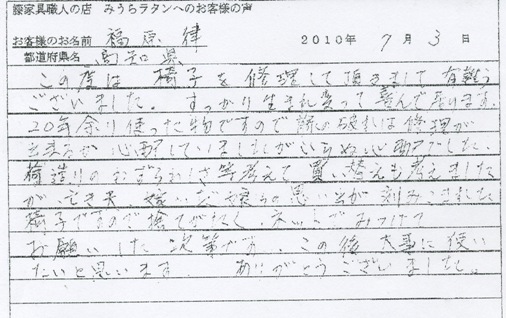 籐家具職人の店 みうらラタンへのお客様の声
お客様のお名前 福原 律 2010年 7月 3日
都道府県名 高知県
この度は 椅子を修理して頂きまして 有難う
ございました。すっかり生まれ変って喜んで居ります。
20年余り使った物ですので 籐の破れは修理が
出来るか 心配していましたがいらぬ心配でした。
荷造りのわずらわしさ等考えて 買い替えも考えました
が、亡き夫、嫁いだ娘らの思い出が刻みこまれた
椅子ですので捨てがたく ネットでみつけて
お願いした次第です。この後大事に使い
たいと思います ありがとうございました。